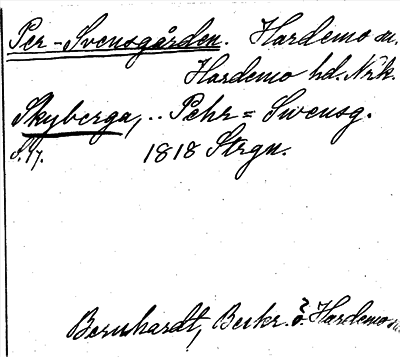 Per-Svensgården. Hardemo sn.
Hardemo hd. Nrk.
Skyberga, .. Pehr = Swensg.
s. 17. 1818 Strgn.
Bernhardt, Beskr. ö. Hardemo